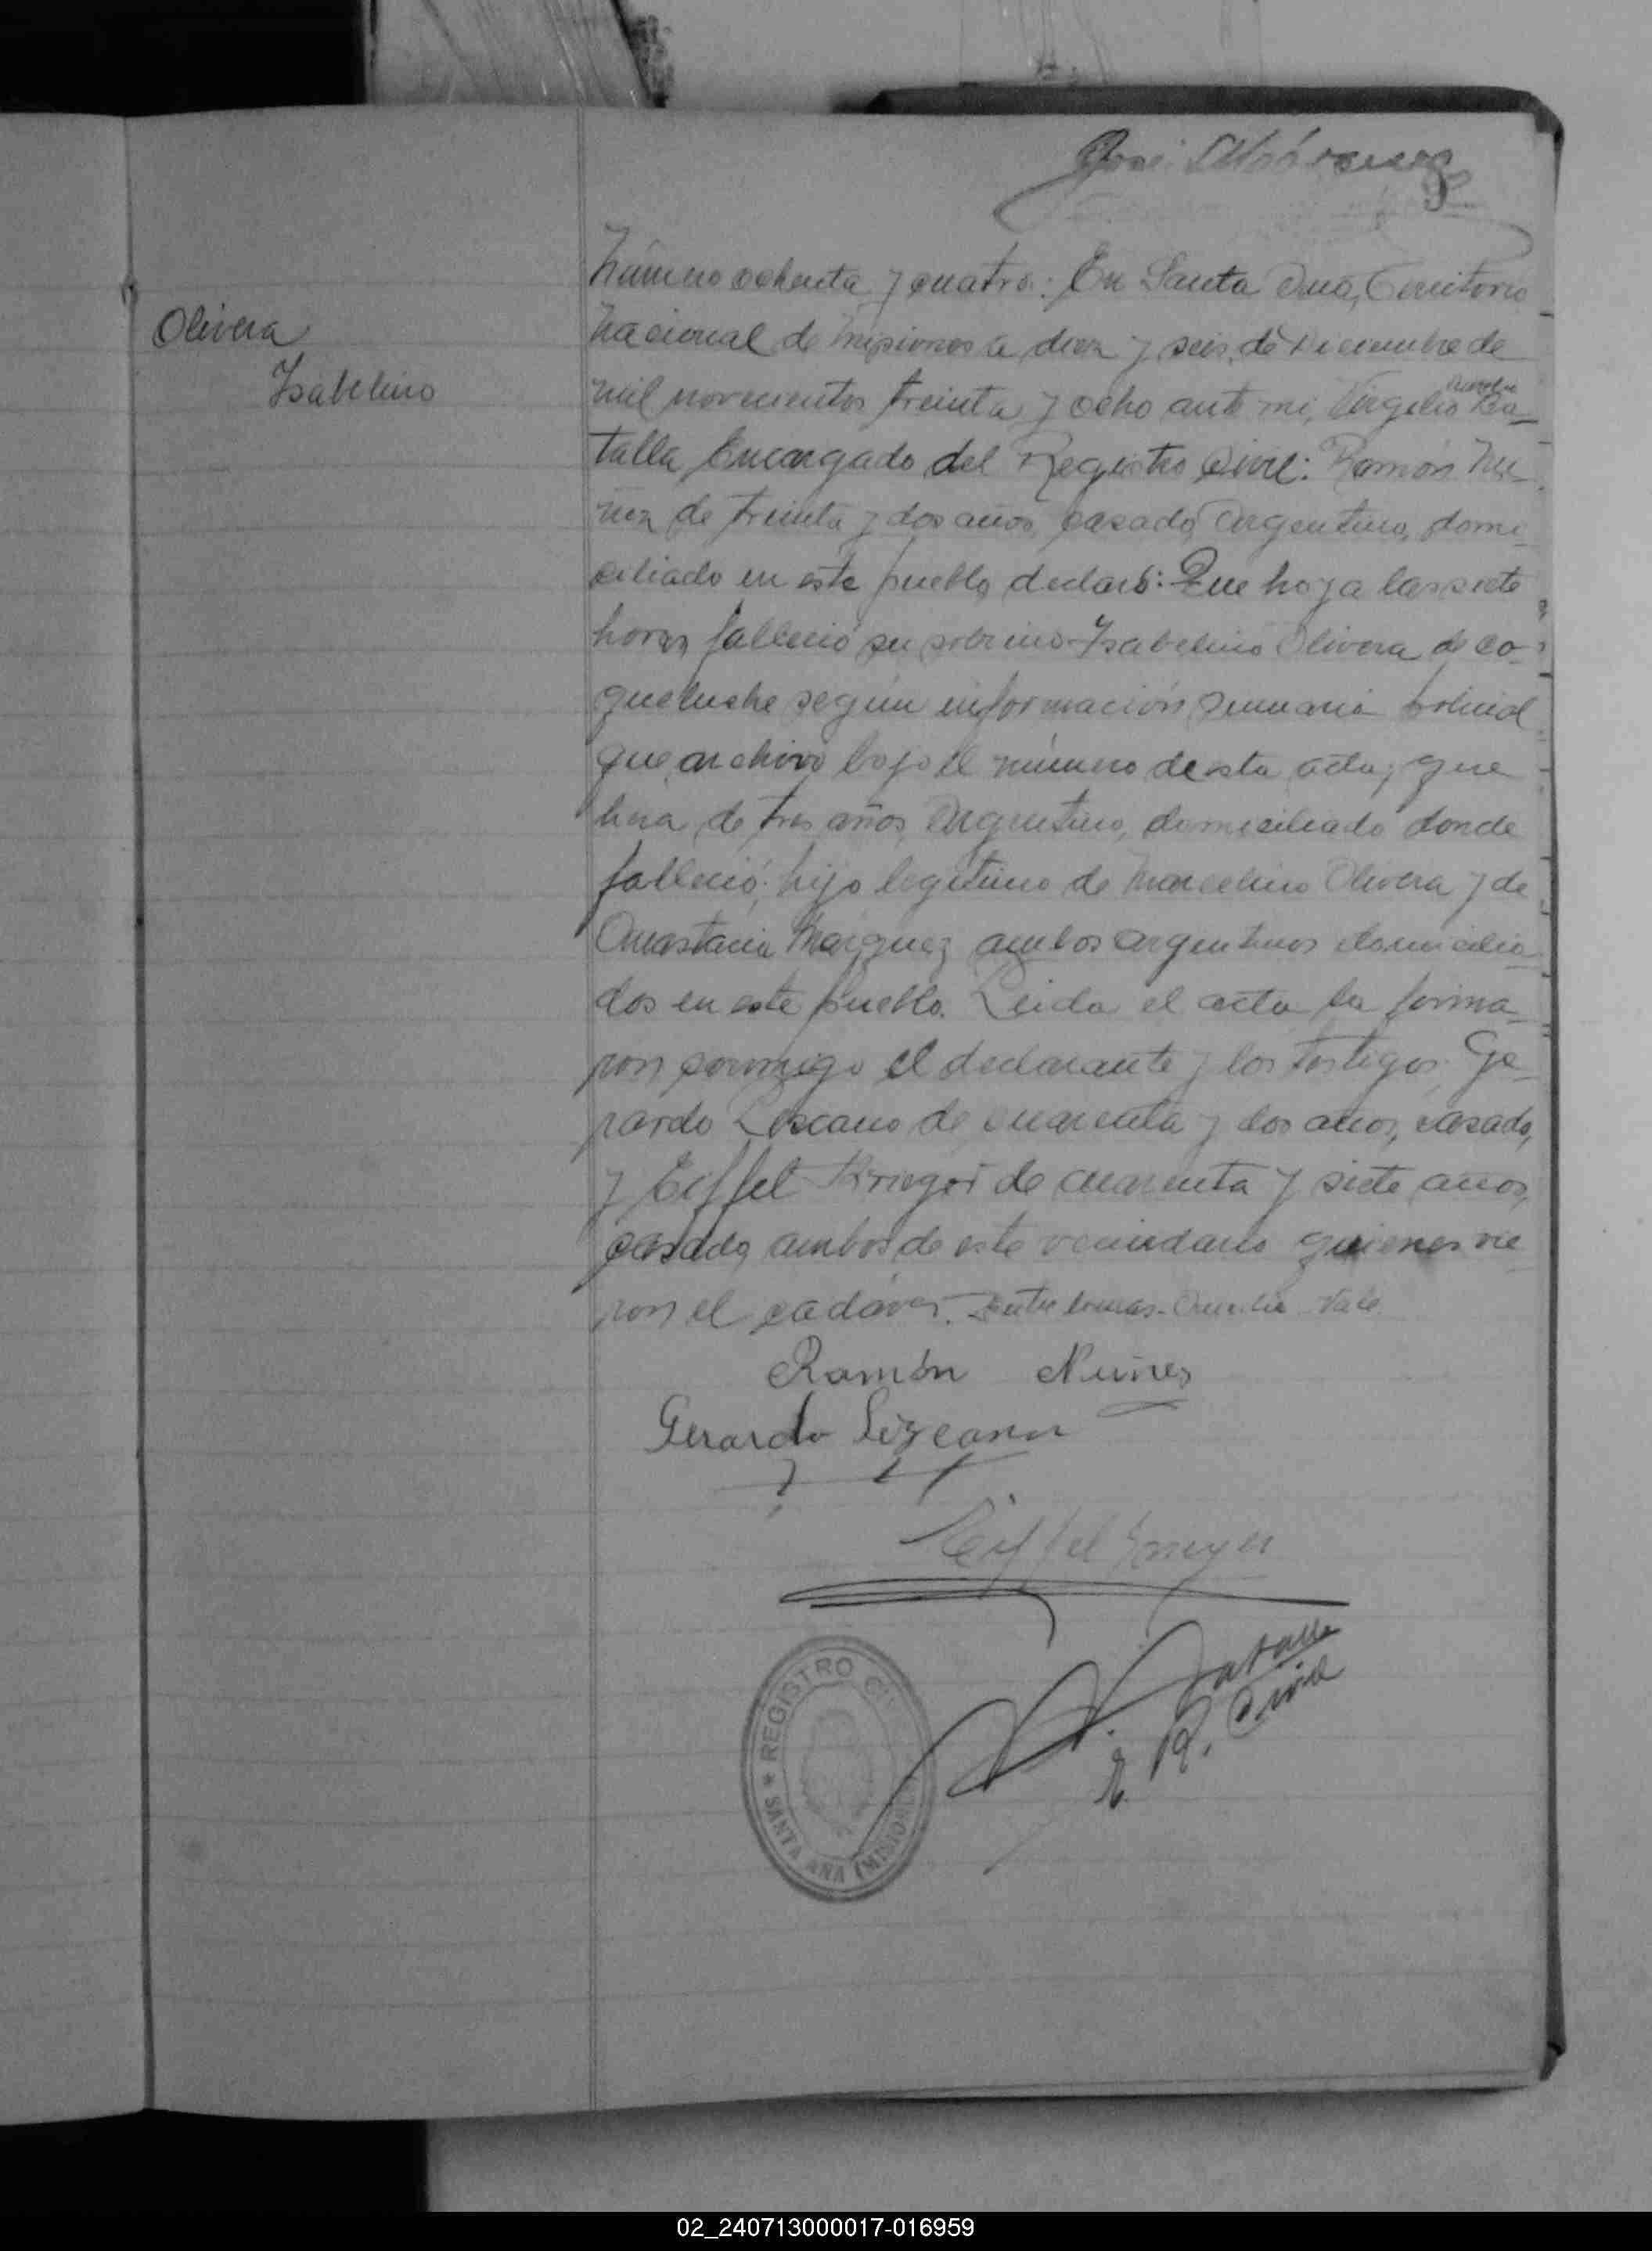 José Márquez
Olivera
Isabelino
Número ochenta y cuatro: En Santa Ana, Territorio
Nacional de Misiones a diez y seis de Diciembre de
mil novecientos treinta y ocho ante mi, Virgilio Amelio Ba-
talla Encargado del Registro Civil: Ramón Nú-
ñez de treinta y dos años, casado, Argentino, domi-
ciliado en este pueblo, declaró: Que hoy a las siete
horas falleció su sobrino Isabelino Olivera de co-
queluche según información sumaria policial
que archivo bajo el número de esta acta; que
tenía de tres años, Argentino, domiciliado donde
falleció; hijo legítimo de Marcelino Olivera y de
Anastacia Márquez ambos argentinos domicilia-
dos en este pueblo. Leida el acta la firma-
ron conmigo el declarante y los testigos: Ge-
rardo Lescano de cuarenta y dos años, casado,
y Eiffel Krieger de cuarenta y siete años,
casado, ambos de este vecindario quienes vie-
ron el cadáver. Entre lineas - Amelio - Vale.
Ramón Núñes
Gerardo Lezcano
Eiffel
V. Batalla
E. R. Civil
REGISTRO CIVIL
* SANTA ANA (MISIONES)
02_240713000017-016959